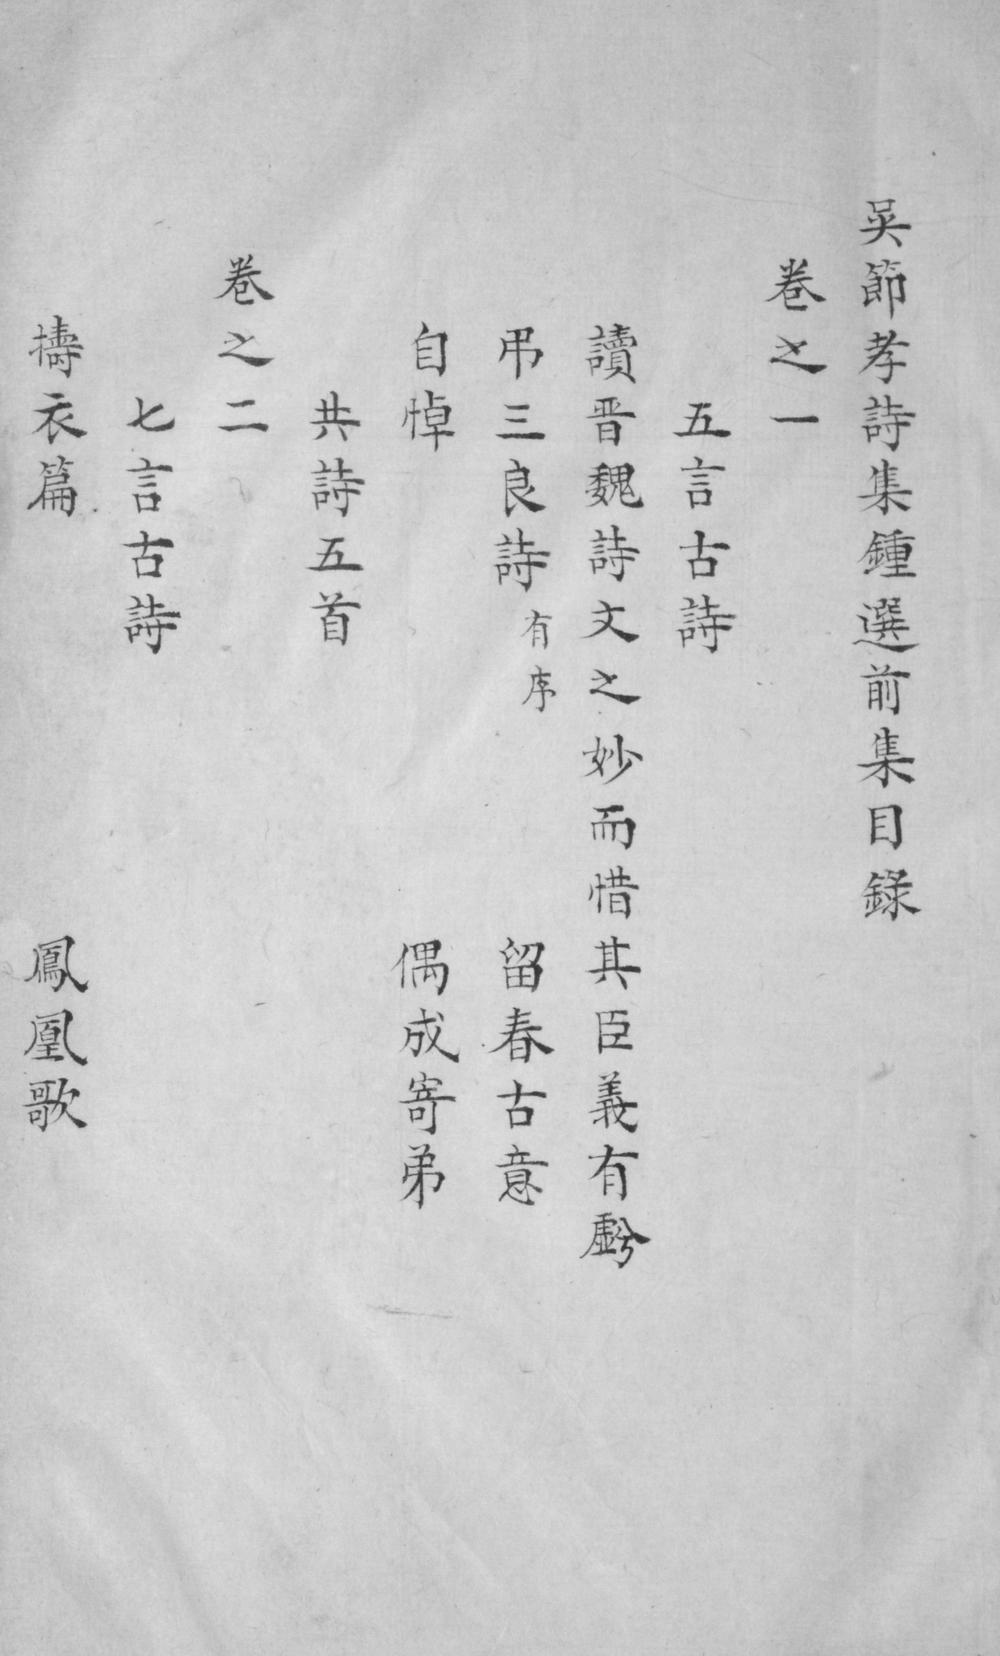 吳節孝詩集鍾選前集目錄
卷之一
五言古詩
讀晉魏詩文之妙而惜其臣義有虧
弔三良詩有序 留春古意
自悼 偶成寄弟
共詩五首
卷之二
七言古詩
擣衣篇 鳳凰歌